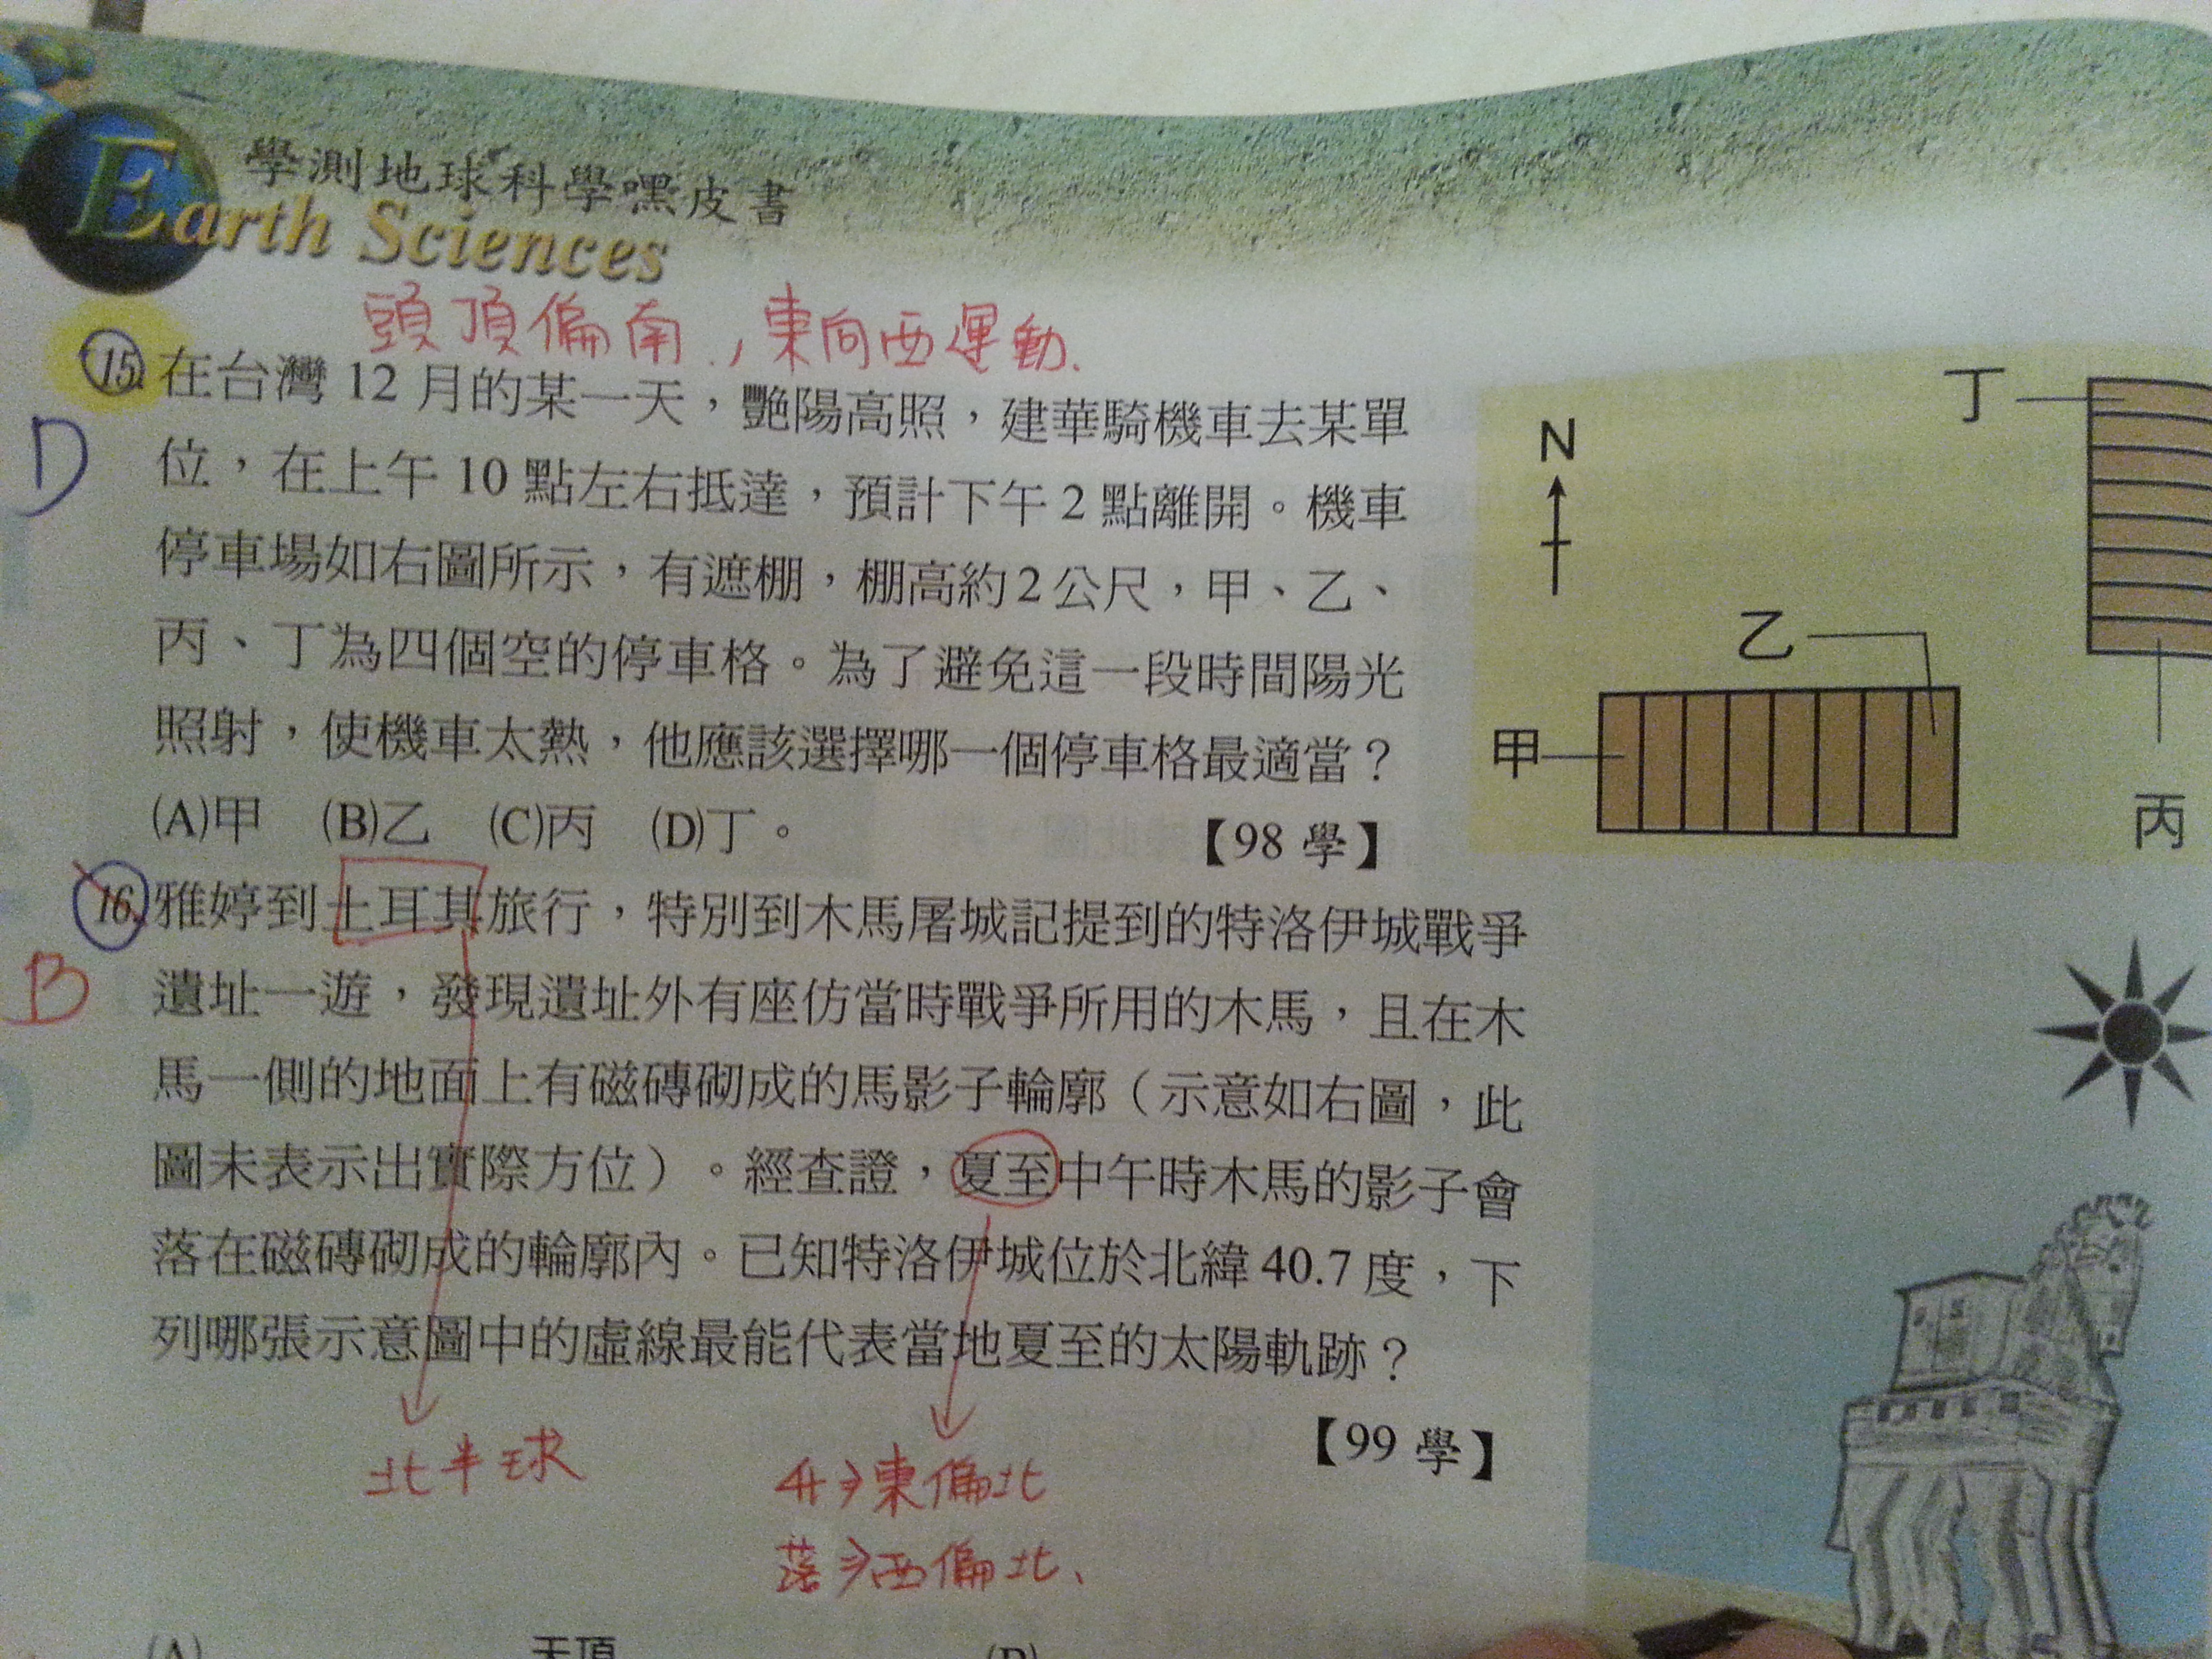 學測地球科學嘿皮書
Earth Sciences
頭頂偏南，東向西運動.
15.在台灣 12 月的某一天，艷陽高照，建華騎機車去某單
D
位，在上午 10 點左右抵達，預計下午 2 點離開。機車
停車場如右圖所示，有遮棚，棚高約 2 公尺，甲、乙、
丙、丁為四個空的停車格。為了避免這一段時間陽光
照射，使機車太熱，他應該選擇哪一個停車格最適當？
(A)甲 (B)乙 (C)丙 (D)丁。
【98 學】
丁
N
乙
甲
丙
16.雅婷到土耳其旅行，特別到木馬屠城記提到的特洛伊城戰爭
B
遺址一遊，發現遺址外有座仿當時戰爭所用的木馬，且在木
馬一側的地面上有磁磚砌成的馬影子輪廓（示意如右圖，此
圖未表示出實際方位）。經查證，夏至中午時木馬的影子會
落在磁磚砌成的輪廓內。已知特洛伊城位於北緯 40.7 度，下
列哪張示意圖中的虛線最能代表當地夏至的太陽軌跡？
【99 學】
北半球
升→東偏北
落→西偏北、
(A)
天頂
(B)